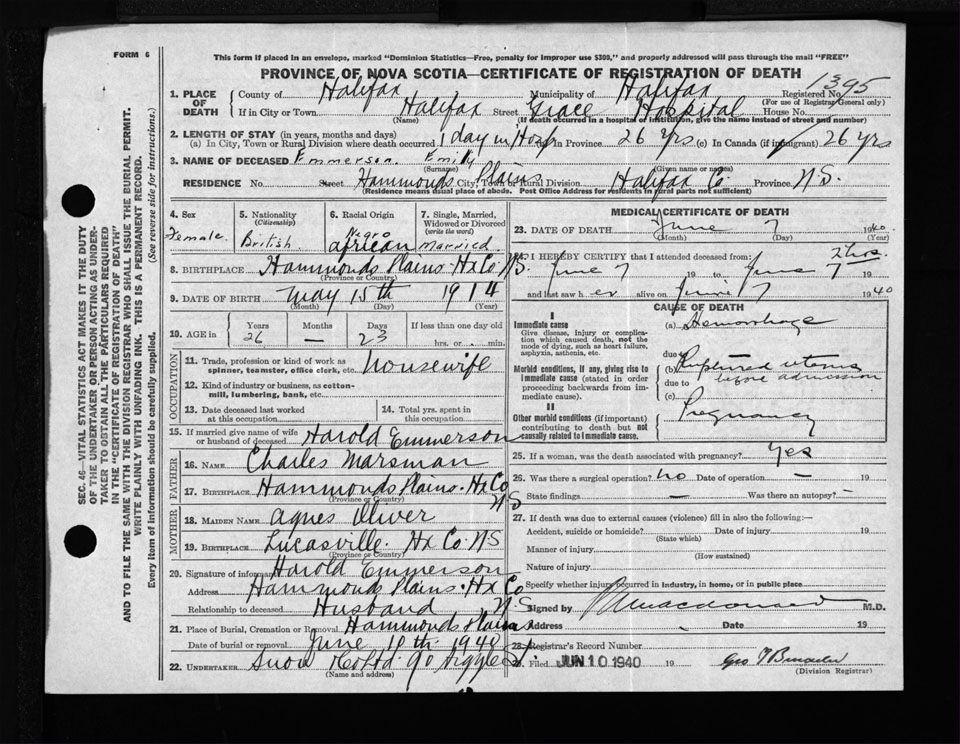 FORM 6
This form if placed in an envelope, marked "Dominion Statistics—Free, penalty for improper use $300," and properly addressed will pass through the mail "FREE"
PROVINCE OF NOVA SCOTIA—CERTIFICATE OF REGISTRATION OF DEATH
1. PLACE OF DEATH
County of Halifax Municipality of Halifax Registered No. 1395
(For use of Registrar General only)
If in City or Town Halifax Street Grace Hospital House No.
(Name) (If death occurred in a hospital or institution, give the name instead of street and number)
2. LENGTH OF STAY (in years, months and days)
(a) In City, Town or Rural Division where death occurred 1 day in Hosp (b) In Province 26 yrs (c) In Canada (if immigrant) 26 yrs
3. NAME OF DECEASED Emmerson Emily
(Surname) (Given name or names)
RESIDENCE No. Street Hammonds Plains City, Town or Rural Division Halifax Co. Province N.S.
(Residence means usual place of abode. Post Office Address for residents in rural parts not sufficient)
4. Sex Female
5. Nationality (Citizenship) British
6. Racial Origin Negro african
7. Single, Married, Widowed or Divorced (write the word) married
8. BIRTHPLACE Hammonds Plains Hx Co N.S.
(Province or Country)
9. DATE OF BIRTH May 15th 1914
(Month) (Day) (Year)
10. AGE in Years 26 Months — Days 23 If less than one day old hrs. or min.
OCCUPATION
11. Trade, profession or kind of work as spinner, teamster, office clerk, etc. housewife
12. Kind of industry or business, as cotton-mill, lumbering, bank, etc.
13. Date deceased last worked at this occupation
14. Total yrs. spent in this occupation
15. If married give name of wife or husband of deceased Harold Emmerson
FATHER
16. NAME Charles Marsman
17. BIRTHPLACE Hammonds Plains Hx Co N S
(Province or Country)
MOTHER
18. MAIDEN NAME Agnes Oliver
19. BIRTHPLACE Lucasville Hx Co N S
(Province or Country)
20. Signature of informant Harold Emmerson
Address Hammonds Plains Hx Co N.S.
Relationship to deceased Husband
21. Place of Burial, Cremation or Removal Hammonds Plains
Date of burial or removal June 10th 1940
22. UNDERTAKER Snow
(Name and address)
MEDICAL CERTIFICATE OF DEATH
23. DATE OF DEATH June 7 1940
(Month) (Day) (Year)
24. I HEREBY CERTIFY that I attended deceased from: 2 hrs.
June 7 19 to June 7 19
and last saw her alive on June 7 1940
CAUSE OF DEATH
I
Immediate cause
Give disease, injury or complication which caused death, not the mode of dying, such as heart failure, asphyxia, asthenia, etc.
(a) Hemorrhage
due to
Morbid conditions, if any, giving rise to immediate cause (stated in order proceeding backwards from immediate cause).
(b) Ruptured uterus
before admission
due to
(c)
II
Other morbid conditions (if important) contributing to death but not causally related to immediate cause.
Pregnancy
25. If a woman, was the death associated with pregnancy? Yes
26. Was there a surgical operation? no Date of operation —
State findings — Was there an autopsy? —
27. If death was due to external causes (violence) fill in also the following:—
Accident, suicide or homicide? Date of injury 19
(State which)
Manner of injury
(How sustained)
Nature of injury
Specify whether injury occurred in industry, in home, or in public place
Signed by Macdonald M.D.
Address Date 19
28. Registrar's Record Number
29. Filed JUN 10 1940 19
(Division Registrar)
SEC. 46—VITAL STATISTICS ACT MAKES IT THE DUTY
OF THE UNDERTAKER OR PERSON ACTING AS UNDER-
TAKER TO OBTAIN ALL THE PARTICULARS REQUIRED
IN THE "CERTIFICATE OF REGISTRATION OF DEATH"
AND TO FILE THE SAME WITH THE DIVISION REGISTRAR WHO SHALL ISSUE THE BURIAL PERMIT.
WRITE PLAINLY WITH UNFADING INK. THIS IS A PERMANENT RECORD.
Every item of information should be carefully supplied. (See reverse side for instructions.)